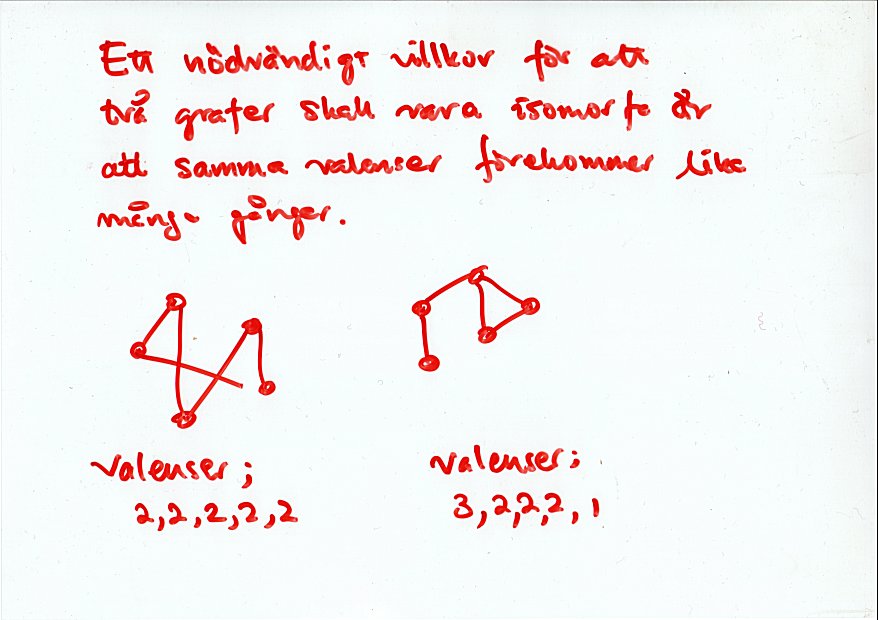 Ett nödvändigt villkor för att
två grafer skall vara isomorfa är
att samma valenser förekommer lika
många gånger.
valenser;
2,2,2,2,2
valenser:
3,2,2,2,1